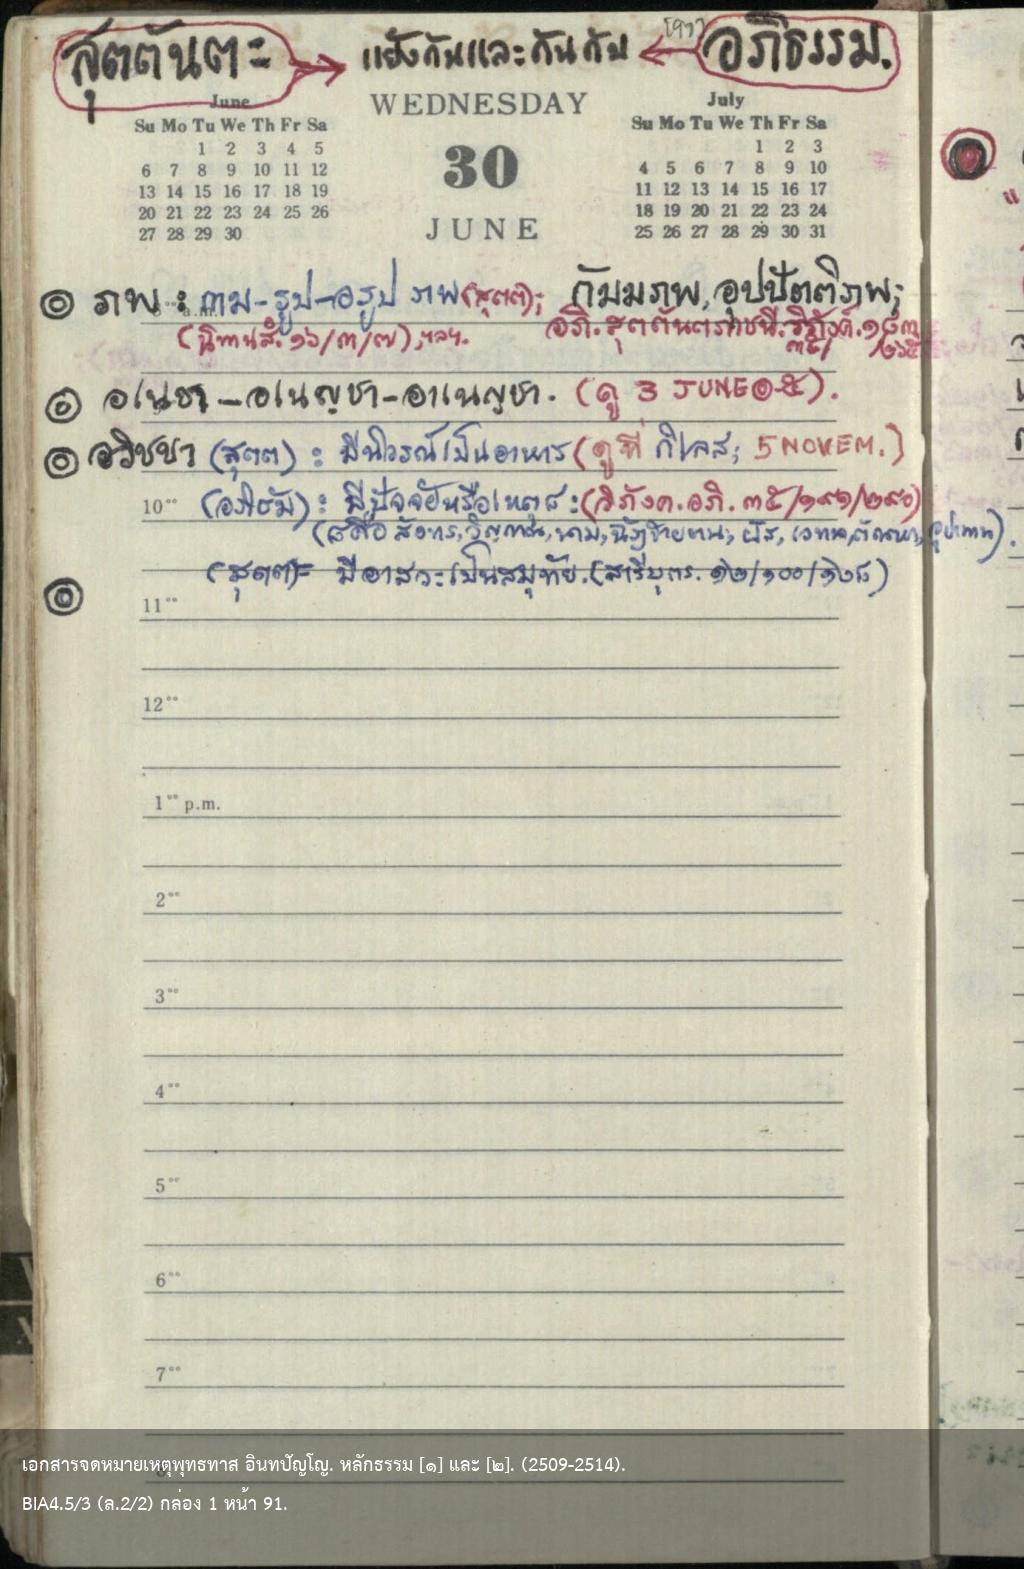 สุตตันตะ → แย้งกันและกันกับ ← อภิธรรม.
June WEDNESDAY July
Su Mo Tu We Th Fr Sa
1 2 3 4 5
6 7 8 9 10 11 12
13 14 15 16 17 18 19
20 21 22 23 24 25 26
27 28 29 30
30
JUNE
Su Mo Tu We Th Fr Sa
1 2 3
4 5 6 7 8 9 10
11 12 13 14 15 16 17
18 19 20 21 22 23 24
25 26 27 28 29 30 31
ภพ : กาม-รูป-อรูป ภพ (สุตต); กัมมภพ, อุปปัตติภพ;
(นิทานสํ. ๑๖/๓/๗), ฯลฯ. อภิ. สุตตันตภาชนี. วิภังค์. ๑๘๓
๓๕/
อเนชา – อเนญชา – อาเนญชา. (ดู 3 JUNE ๑-๕).
อวิชชา (สุตต) : มีนิวรณ์เป็นอาหาร (ดูที่ กิเลส; 5 NOVEM.)
10°° (อภิธัม) : มีปัจจัยหรือเหตุ ๘ : (วิภังค. อภิ. ๓๕/๑๙๑/๒๙๐)
(๘ คือ สังขาร, วิญญาณ, นาม, ฉัฏฐายตน, ผัส, เวทนา, ตัณหา, อุปาทาน).
(สุตต) = มีอาสวะเป็นสมุทัย. (สารีบุตร. ๑๒/๑๐๐/๑๒๘)
11°°
12°°
1°° p.m.
2°°
3°°
4°°
5°°
6°°
7°°
เอกสารจดหมายเหตุพุทธทาส อินทปัญโญ. หลักธรรม [๑] และ [๒]. (2509-2514).
BIA4.5/3 (ล.2/2) กล่อง 1 หน้า 91.